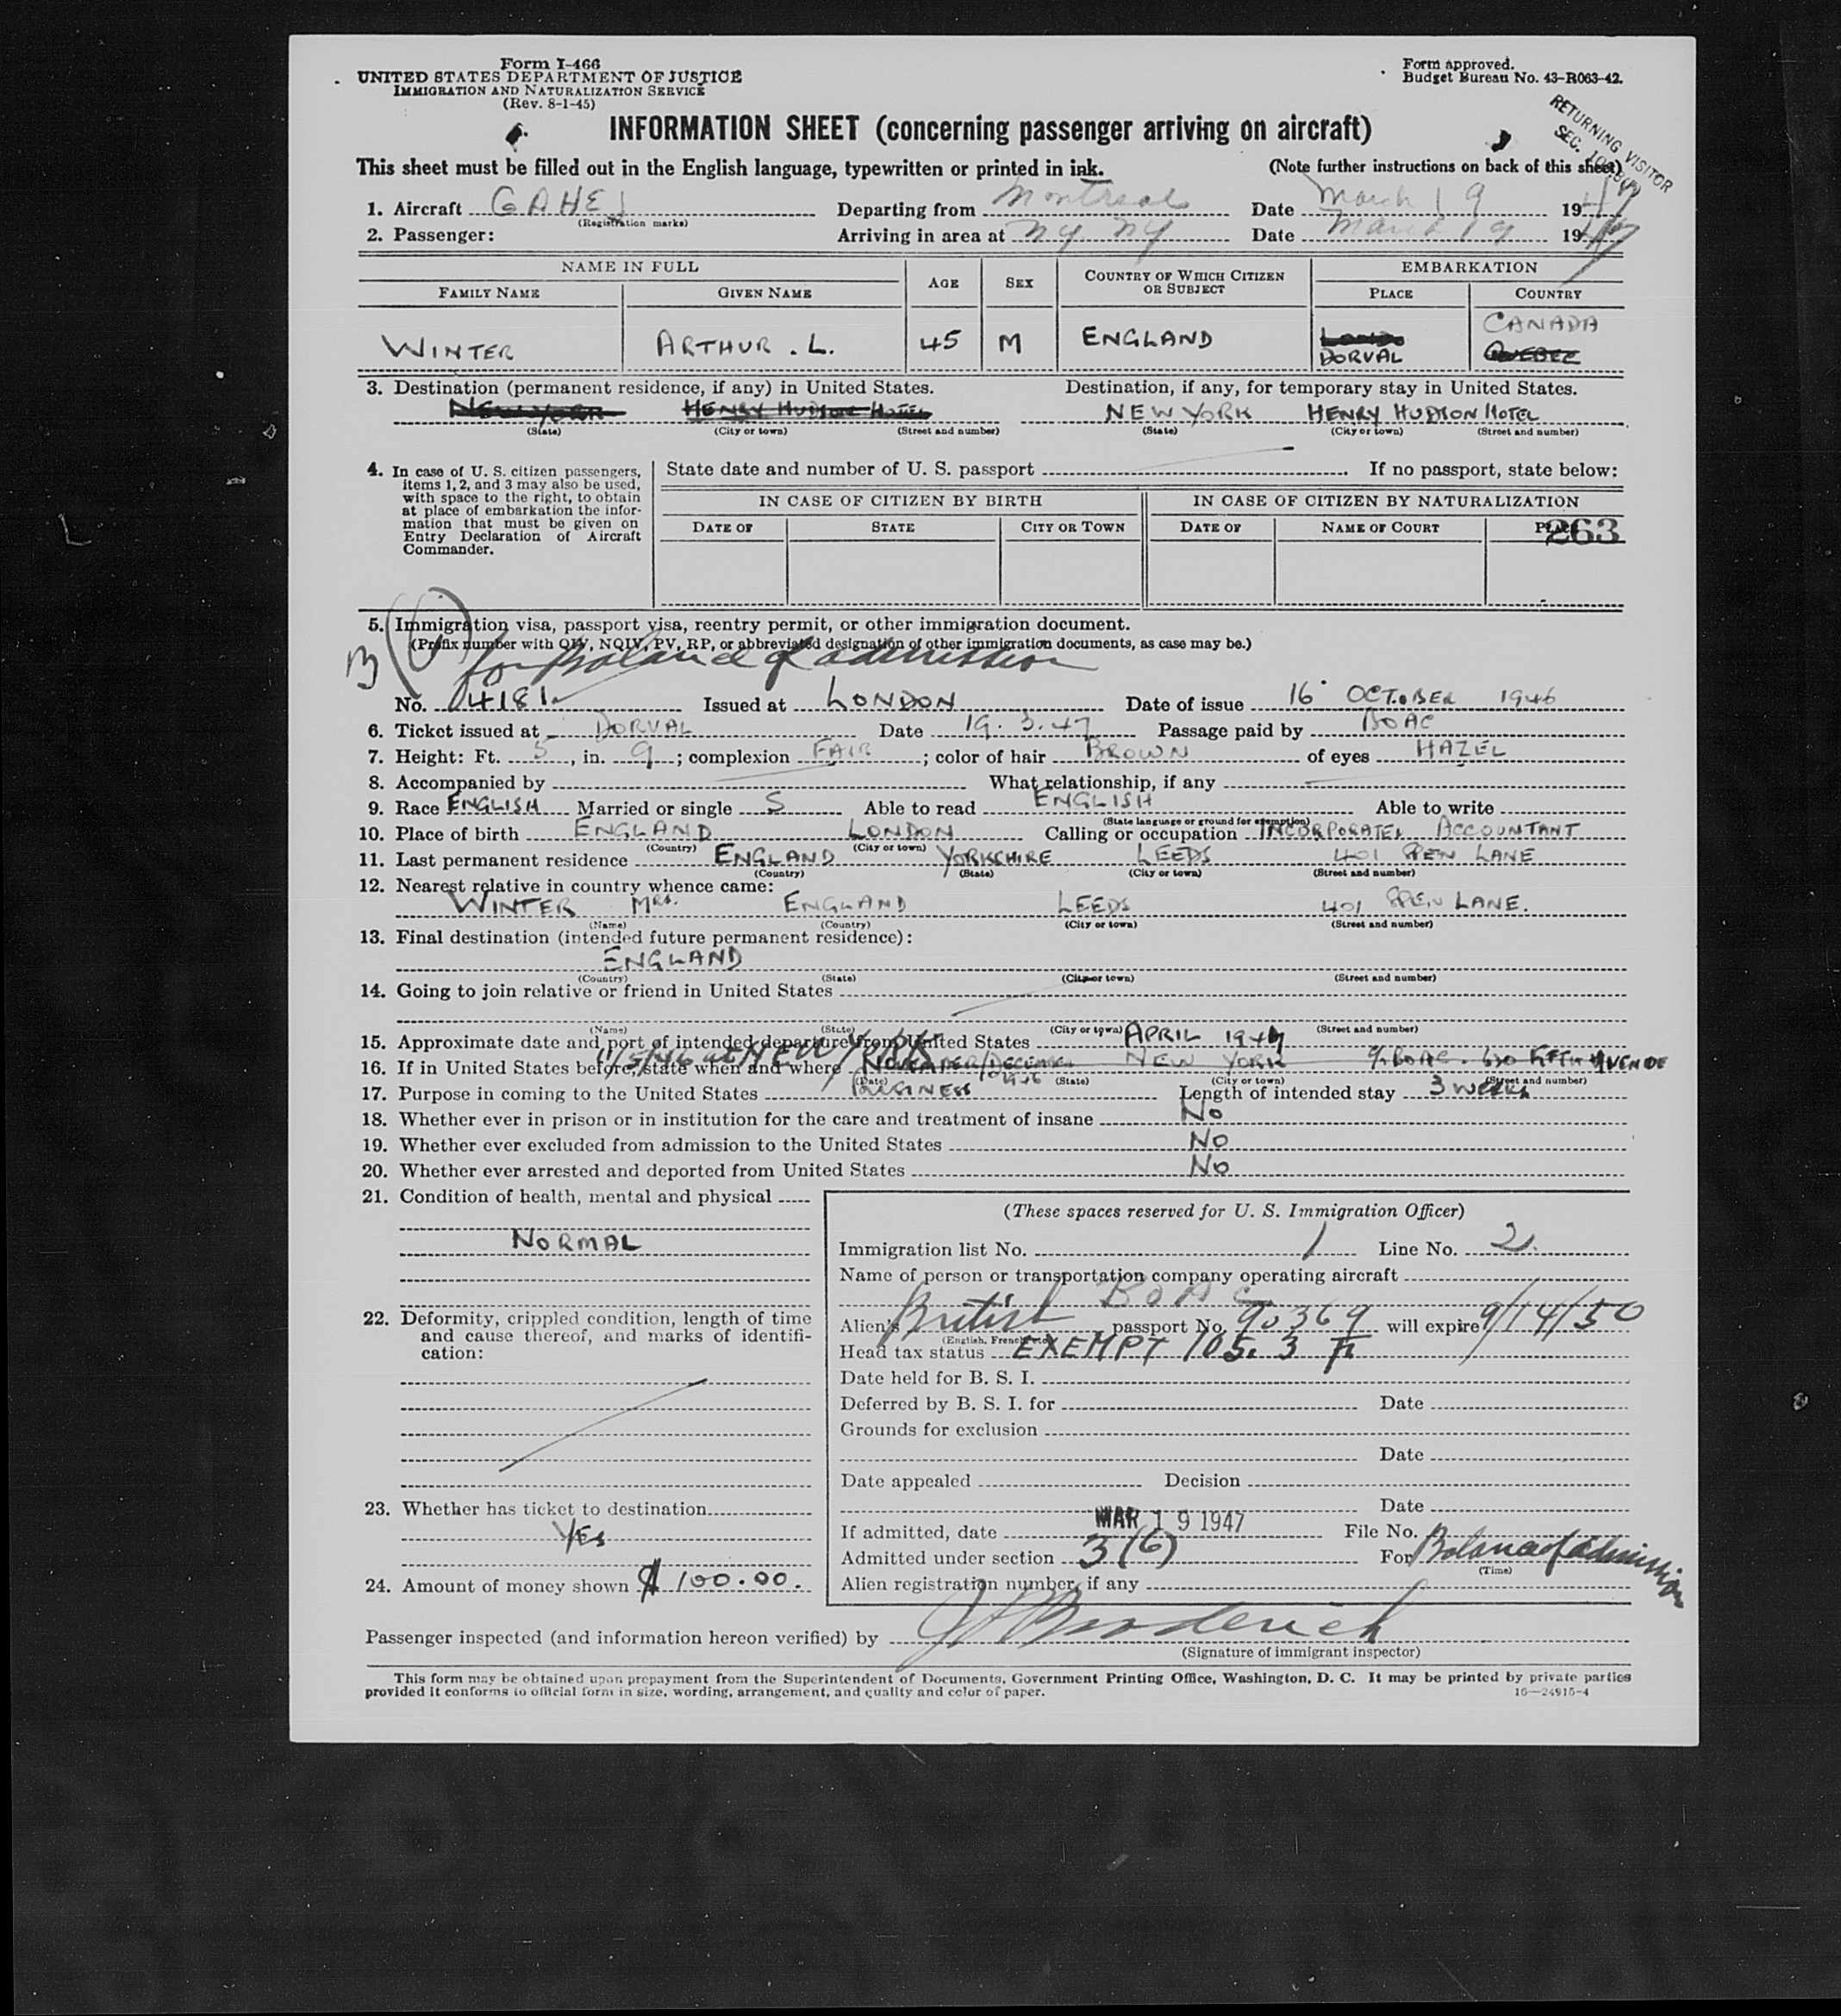 Form I-466
UNITED STATES DEPARTMENT OF JUSTICE
IMMIGRATION AND NATURALIZATION SERVICE
(Rev. 8-1-45)
Form approved.
Budget Bureau No. 43-R063-42.
RETURNING VISITOR
SEC.
INFORMATION SHEET (concerning passenger arriving on aircraft)
This sheet must be filled out in the English language, typewritten or printed in ink. (Note further instructions on back of this sheet)
1. Aircraft GAHEJ Departing from Montreal Date March 19 1947
(Registration marks)
2. Passenger: Arriving in area at NY NY Date March 19 1947
NAME IN FULL AGE SEX COUNTRY OF WHICH CITIZEN OR SUBJECT EMBARKATION
FAMILY NAME GIVEN NAME PLACE COUNTRY
WINTER ARTHUR . L. 45 M ENGLAND DORVAL CANADA QUEBEC
3. Destination (permanent residence, if any) in United States. Destination, if any, for temporary stay in United States.
NEW YORK HENRY HUDSON HOTEL NEW YORK HENRY HUDSON HOTEL
(State) (City or town) (Street and number) (State) (City or town) (Street and number)
4. In case of U. S. citizen passengers, items 1, 2, and 3 may also be used, with space to the right, to obtain at place of embarkation the information that must be given on Entry Declaration of Aircraft Commander.
State date and number of U. S. passport If no passport, state below:
IN CASE OF CITIZEN BY BIRTH IN CASE OF CITIZEN BY NATURALIZATION
DATE OF STATE CITY OR TOWN DATE OF NAME OF COURT PLACE
263
5. Immigration visa, passport visa, reentry permit, or other immigration document.
(Prefix number with QIV, NQIV, PV, RP, or abbreviated designation of other immigration documents, as case may be.)
for Balance of admission
No. 04181 Issued at LONDON Date of issue 16 OCTOBER 1946
6. Ticket issued at DORVAL Date 19.3.47 Passage paid by BOAC
7. Height: Ft. 5, in. 9; complexion FAIR; color of hair BROWN of eyes HAZEL
8. Accompanied by What relationship, if any
9. Race ENGLISH Married or single S Able to read ENGLISH Able to write
(State language or ground for exemption)
10. Place of birth ENGLAND LONDON Calling or occupation INCORPORATED ACCOUNTANT
(Country) (City or town)
11. Last permanent residence ENGLAND YORKSHIRE LEEDS 401 SPEN LANE
(Country) (State) (City or town) (Street and number)
12. Nearest relative in country whence came:
WINTER MRS. ENGLAND LEEDS 401 SPEN LANE.
(Name) (Country) (City or town) (Street and number)
13. Final destination (intended future permanent residence):
ENGLAND
(Country) (State) (City or town) (Street and number)
14. Going to join relative or friend in United States
(Name) (State) (City or town) (Street and number)
15. Approximate date and port of intended departure from United States APRIL 1947
11/5/46 at NEW YORK
16. If in United States before, state when and where NOVEMBER/DECEMBER 1946 NEW YORK c/o BOAC. 630 FIFTH AVENUE
(Date) (State) (City or town) (Street and number)
17. Purpose in coming to the United States BUSINESS Length of intended stay 3 WEEKS
18. Whether ever in prison or in institution for the care and treatment of insane No
19. Whether ever excluded from admission to the United States No
20. Whether ever arrested and deported from United States No
21. Condition of health, mental and physical
NORMAL
22. Deformity, crippled condition, length of time and cause thereof, and marks of identification:
23. Whether has ticket to destination
YES
24. Amount of money shown $ 100.00.
(These spaces reserved for U. S. Immigration Officer)
Immigration list No. 1 Line No. 2
Name of person or transportation company operating aircraft
BOAC
Alien's British passport No. 90369 will expire 9/14/50
(English, French, etc.)
Head tax status EXEMPT 105.3
Date held for B. S. I.
Deferred by B. S. I. for Date
Grounds for exclusion
Date
Date appealed Decision
Date
If admitted, date MAR 19 1947 File No.
Admitted under section 3(6) For Balance of admission
(Time)
Alien registration number, if any
Passenger inspected (and information hereon verified) by
(Signature of immigrant inspector)
This form may be obtained upon prepayment from the Superintendent of Documents, Government Printing Office, Washington, D. C. It may be printed by private parties
provided it conforms to official form in size, wording, arrangement, and quality and color of paper. 16—24915-4